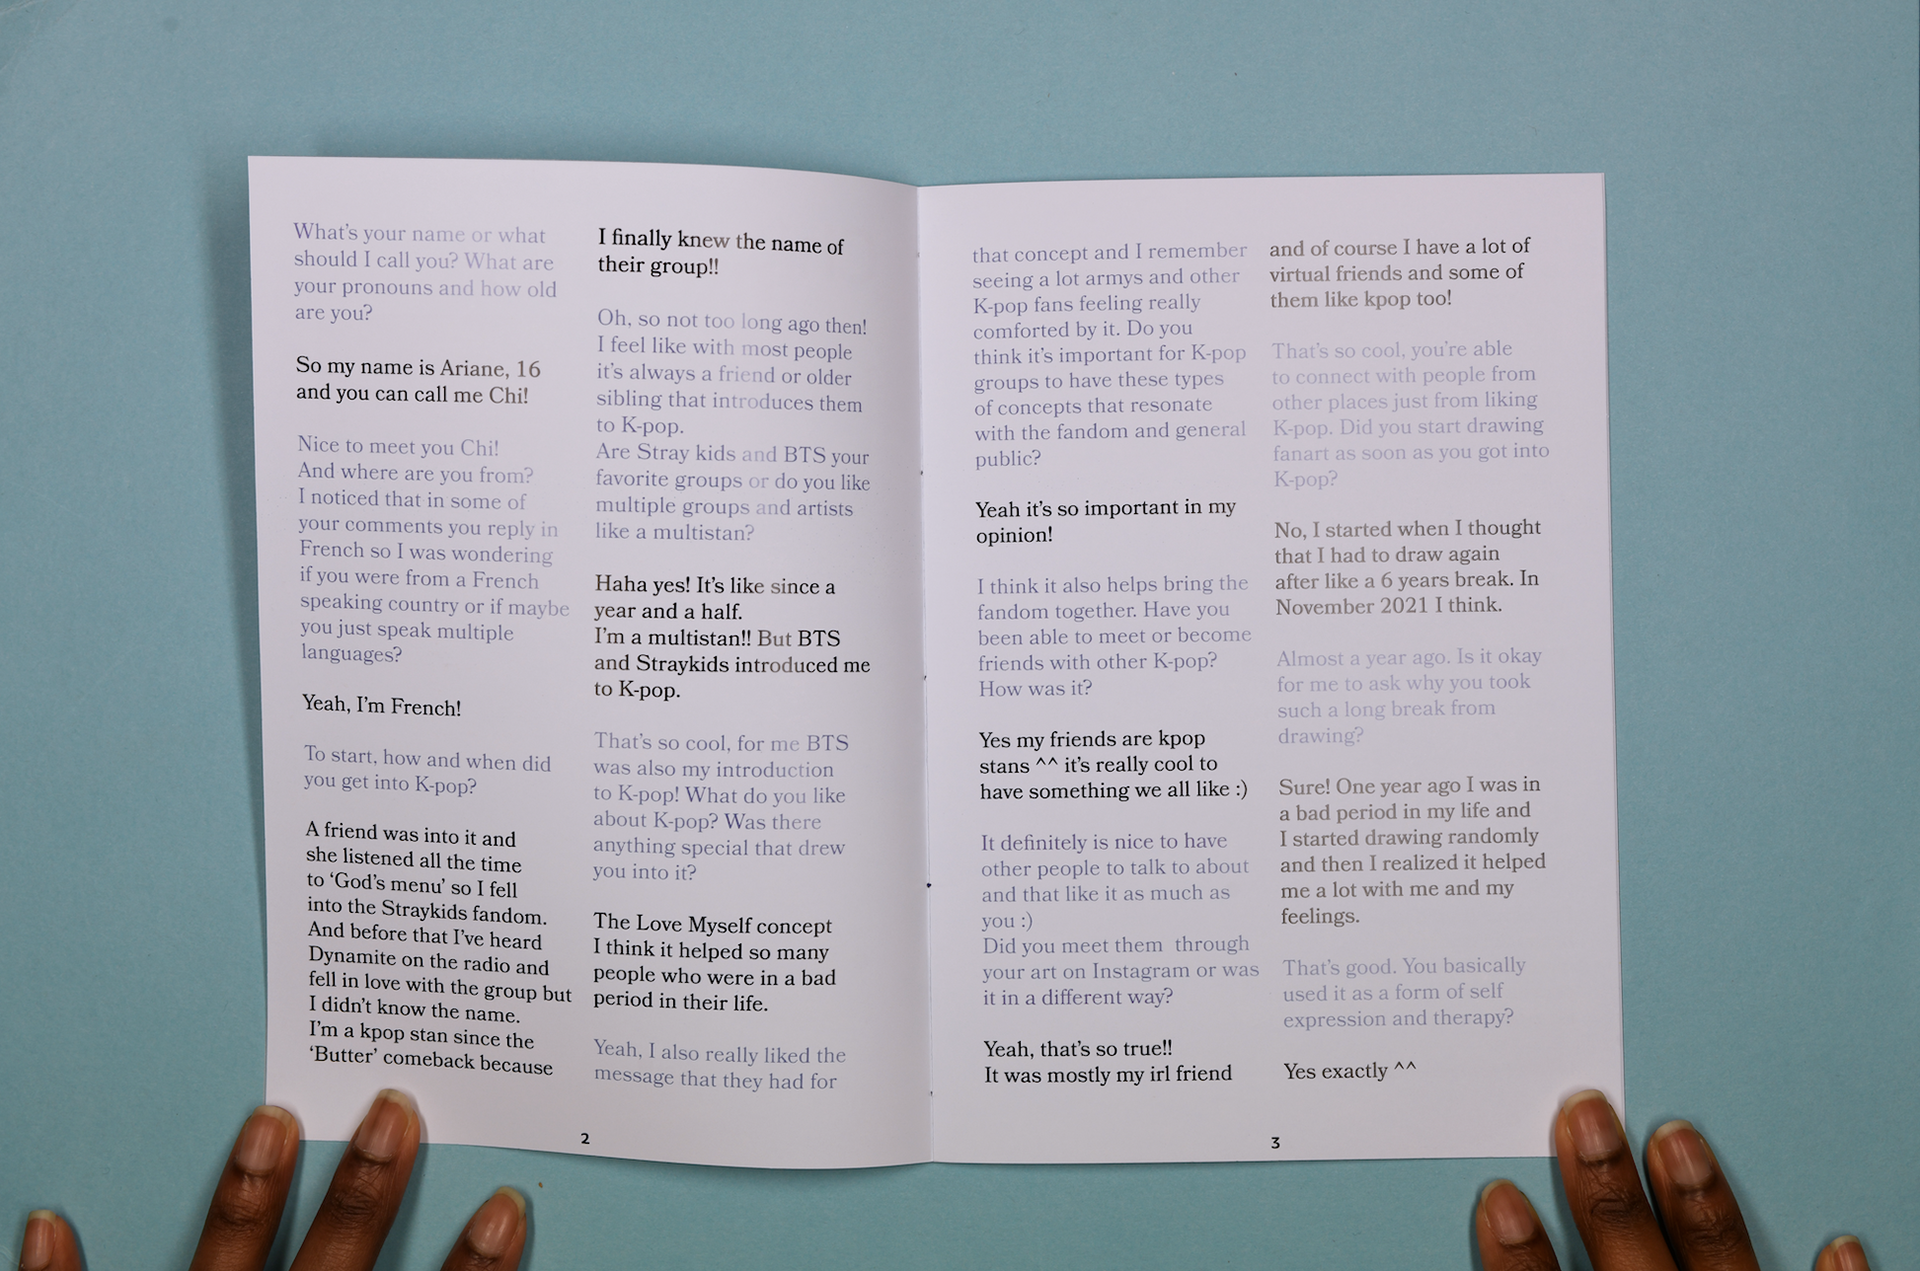 What's your name or what
should I call you? What are
your pronouns and how old
are you?
So my name is Ariane, 16
and you can call me Chi!
Nice to meet you Chi!
And where are you from?
I noticed that in some of
your comments you reply in
French so I was wondering
if you were from a French
speaking country or if maybe
you just speak multiple
languages?
Yeah, I'm French!
To start, how and when did
you get into K-pop?
A friend was into it and
she listened all the time
to ‘God's menu’ so I fell
into the Straykids fandom.
And before that I've heard
Dynamite on the radio and
fell in love with the group but
I didn't know the name.
I'm a kpop stan since the
‘Butter’ comeback because
I finally knew the name of
their group!!
Oh, so not too long ago then!
I feel like with most people
it's always a friend or older
sibling that introduces them
to K-pop.
Are Stray kids and BTS your
favorite groups or do you like
multiple groups and artists
like a multistan?
Haha yes! It's like since a
year and a half.
I'm a multistan!! But BTS
and Straykids introduced me
to K-pop.
That's so cool, for me BTS
was also my introduction
to K-pop! What do you like
about K-pop? Was there
anything special that drew
you into it?
The Love Myself concept
I think it helped so many
people who were in a bad
period in their life.
Yeah, I also really liked the
message that they had for
2
that concept and I remember
seeing a lot armys and other
K-pop fans feeling really
comforted by it. Do you
think it's important for K-pop
groups to have these types
of concepts that resonate
with the fandom and general
public?
Yeah it's so important in my
opinion!
I think it also helps bring the
fandom together. Have you
been able to meet or become
friends with other K-pop?
How was it?
Yes my friends are kpop
stans ^^ it's really cool to
have something we all like :)
It definitely is nice to have
other people to talk to about
and that like it as much as
you :)
Did you meet them through
your art on Instagram or was
it in a different way?
Yeah, that's so true!!
It was mostly my irl friend
and of course I have a lot of
virtual friends and some of
them like kpop too!
That's so cool, you're able
to connect with people from
other places just from liking
K-pop. Did you start drawing
fanart as soon as you got into
K-pop?
No, I started when I thought
that I had to draw again
after like a 6 years break. In
November 2021 I think.
Almost a year ago. Is it okay
for me to ask why you took
such a long break from
drawing?
Sure! One year ago I was in
a bad period in my life and
I started drawing randomly
and then I realized it helped
me a lot with me and my
feelings.
That's good. You basically
used it as a form of self
expression and therapy?
Yes exactly ^^
3